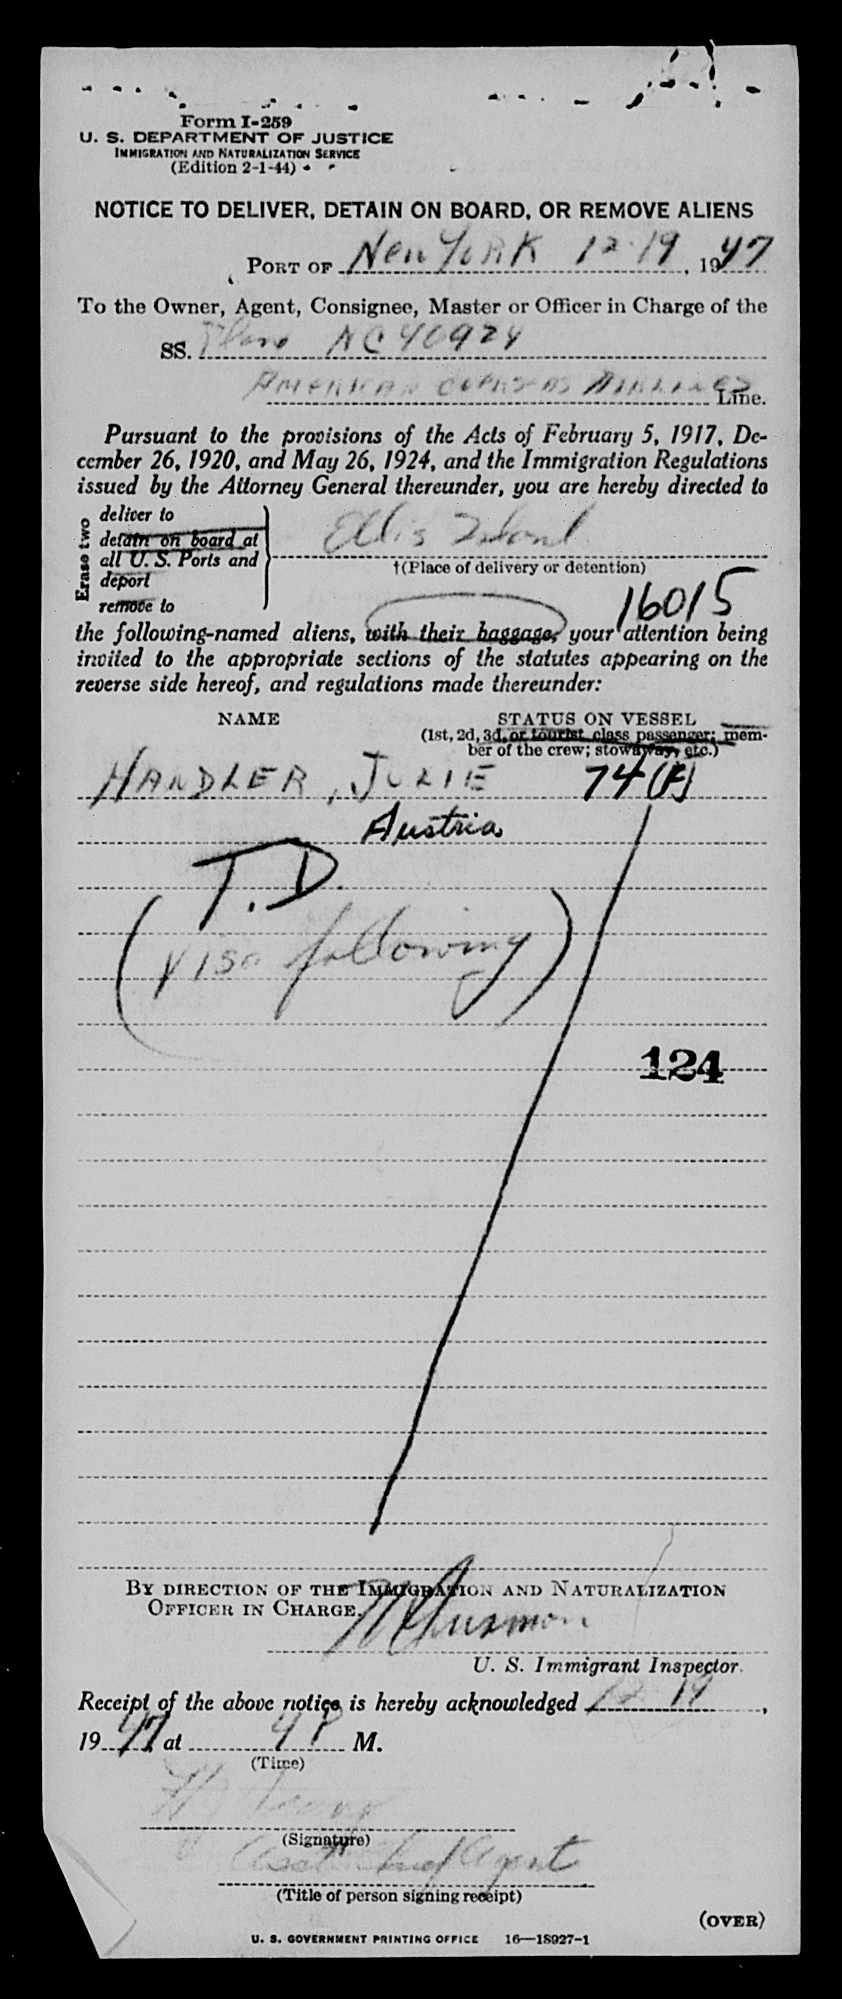 Form I-259
U. S. DEPARTMENT OF JUSTICE
IMMIGRATION AND NATURALIZATION SERVICE
(Edition 2-1-44)
NOTICE TO DELIVER, DETAIN ON BOARD, OR REMOVE ALIENS
PORT OF New York 12-19, 1947
To the Owner, Agent, Consignee, Master or Officer in Charge of the
SS. Plane NC 40924
AMERICAN OVERSEAS AIRLINES Line.
Pursuant to the provisions of the Acts of February 5, 1917, De-
cember 26, 1920, and May 26, 1924, and the Immigration Regulations
issued by the Attorney General thereunder, you are hereby directed to
Erase two
deliver to
detain on board at
all U. S. Ports and
deport
remove to
Ellis Island
†(Place of delivery or detention)
16015
the following-named aliens, with their baggage, your attention being
invited to the appropriate sections of the statutes appearing on the
reverse side hereof, and regulations made thereunder:
NAME STATUS ON VESSEL
(1st, 2d, 3d, or tourist class passenger; mem-
ber of the crew; stowaway, etc.)
HANDLER, JULIE 74 (F)
Austria
T.D.
(visa following)
124
BY DIRECTION OF THE IMMIGRATION AND NATURALIZATION
OFFICER IN CHARGE.
U. S. Immigrant Inspector.
Receipt of the above notice is hereby acknowledged 12 19,
1947 at 4 P M.
(Time)
(Signature)
Asst Agent
(Title of person signing receipt)
(OVER)
U. S. GOVERNMENT PRINTING OFFICE 16—18927-1